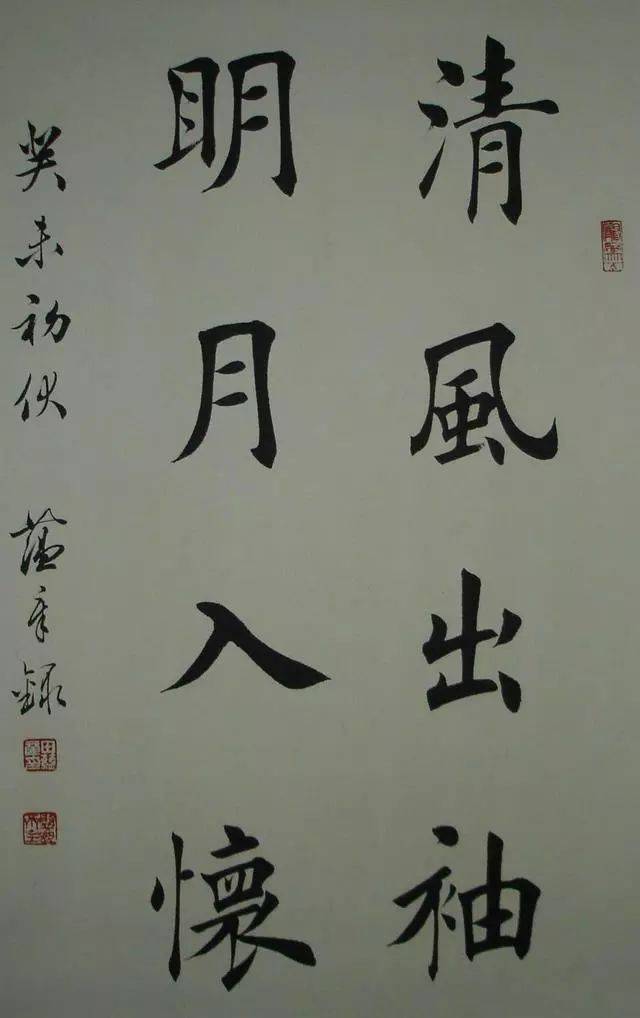 清風出袖
明月入懷
癸未初伏 蕴章録